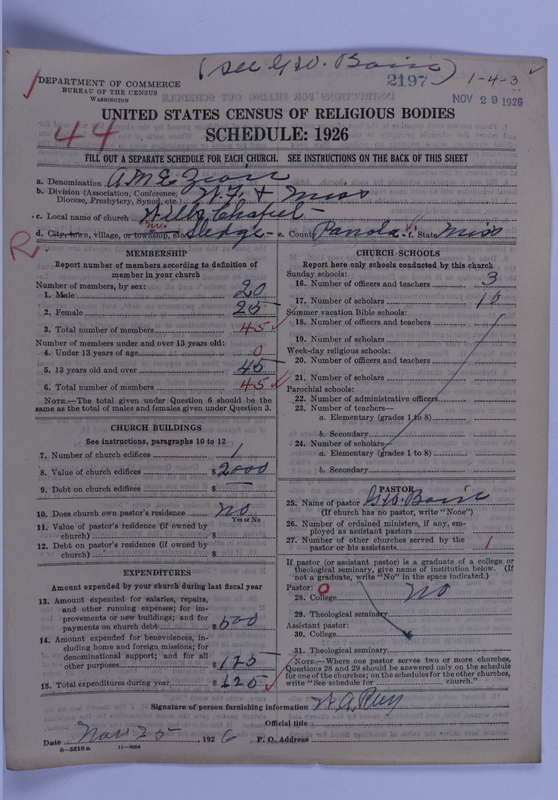 (See G W. Basic)
2197
1-4-3
DEPARTMENT OF COMMERCE
BUREAU OF THE CENSUS
WASHINGTON
NOV 29 1926
UNITED STATES CENSUS OF RELIGIOUS BODIES
44
SCHEDULE: 1926
FILL OUT A SEPARATE SCHEDULE FOR EACH CHURCH. SEE INSTRUCTIONS ON THE BACK OF THIS SHEET
a. Denomination A.M.E. Zion
b. Division (Association, Conference, Diocese, Presbytery, Synod, etc.) & Miss
c. Local name of church Chapel
d. City, town, village, or township, etc. Sledge e. County Panola f. State Miss
R.
MEMBERSHIP
Report number of members according to definition of
member in your church
Number of members, by sex:
1. Male 20
2. Female 25
3. Total number of members 45
Number of members under and over 13 years old:
4. Under 13 years of age 0
5. 13 years old and over 45
6. Total number of members 45
NOTE.—The total given under Question 6 should be the
same as the total of males and females given under Question 3.
CHURCH BUILDINGS
See instructions, paragraphs 10 to 12
7. Number of church edifices 1
8. Value of church edifices $2000
9. Debt on church edifices $ —
10. Does church own pastor's residence? No
Yes or No
11. Value of pastor's residence (if owned by
church) $
12. Debt on pastor's residence (if owned by
church) $
EXPENDITURES
Amount expended by your church during last fiscal year
13. Amount expended for salaries, repairs,
and other running expenses; for im-
provements or new buildings; and for
payments on church debt $500
14. Amount expended for benevolences, in-
cluding home and foreign missions; for
denominational support; and for all
other purposes $125
15. Total expenditures during year $625
CHURCH SCHOOLS
Report here only schools conducted by this church
Sunday schools:
16. Number of officers and teachers 3
17. Number of scholars 10
Summer vacation Bible schools:
18. Number of officers and teachers
19. Number of scholars
Week-day religious schools:
20. Number of officers and teachers
21. Number of scholars
Parochial schools:
22. Number of administrative officers
23. Number of teachers—
a. Elementary (grades 1 to 8)
b. Secondary
24. Number of scholars—
a. Elementary (grades 1 to 8)
b. Secondary
PASTOR
25. Name of pastor G.W. Basic
(If church has no pastor, write "None")
26. Number of ordained ministers, if any, em-
ployed as assistant pastors
27. Number of other churches served by the
pastor or his assistants 1
If pastor (or assistant pastor) is a graduate of a college or
theological seminary, give name of institution below. (If
not a graduate, write "No" in the space indicated.)
Pastor: 0
28. College No
29. Theological seminary
Assistant pastor:
30. College
31. Theological seminary
NOTE.—Where one pastor serves two or more churches,
Questions 28 and 29 should be answered only on the schedule
for one of the churches; on the schedules for the other churches,
write "See schedule for church."
Signature of person furnishing information
Official title
Date Nov 25, 1926 P. O. Address
8-5518a 11-9084